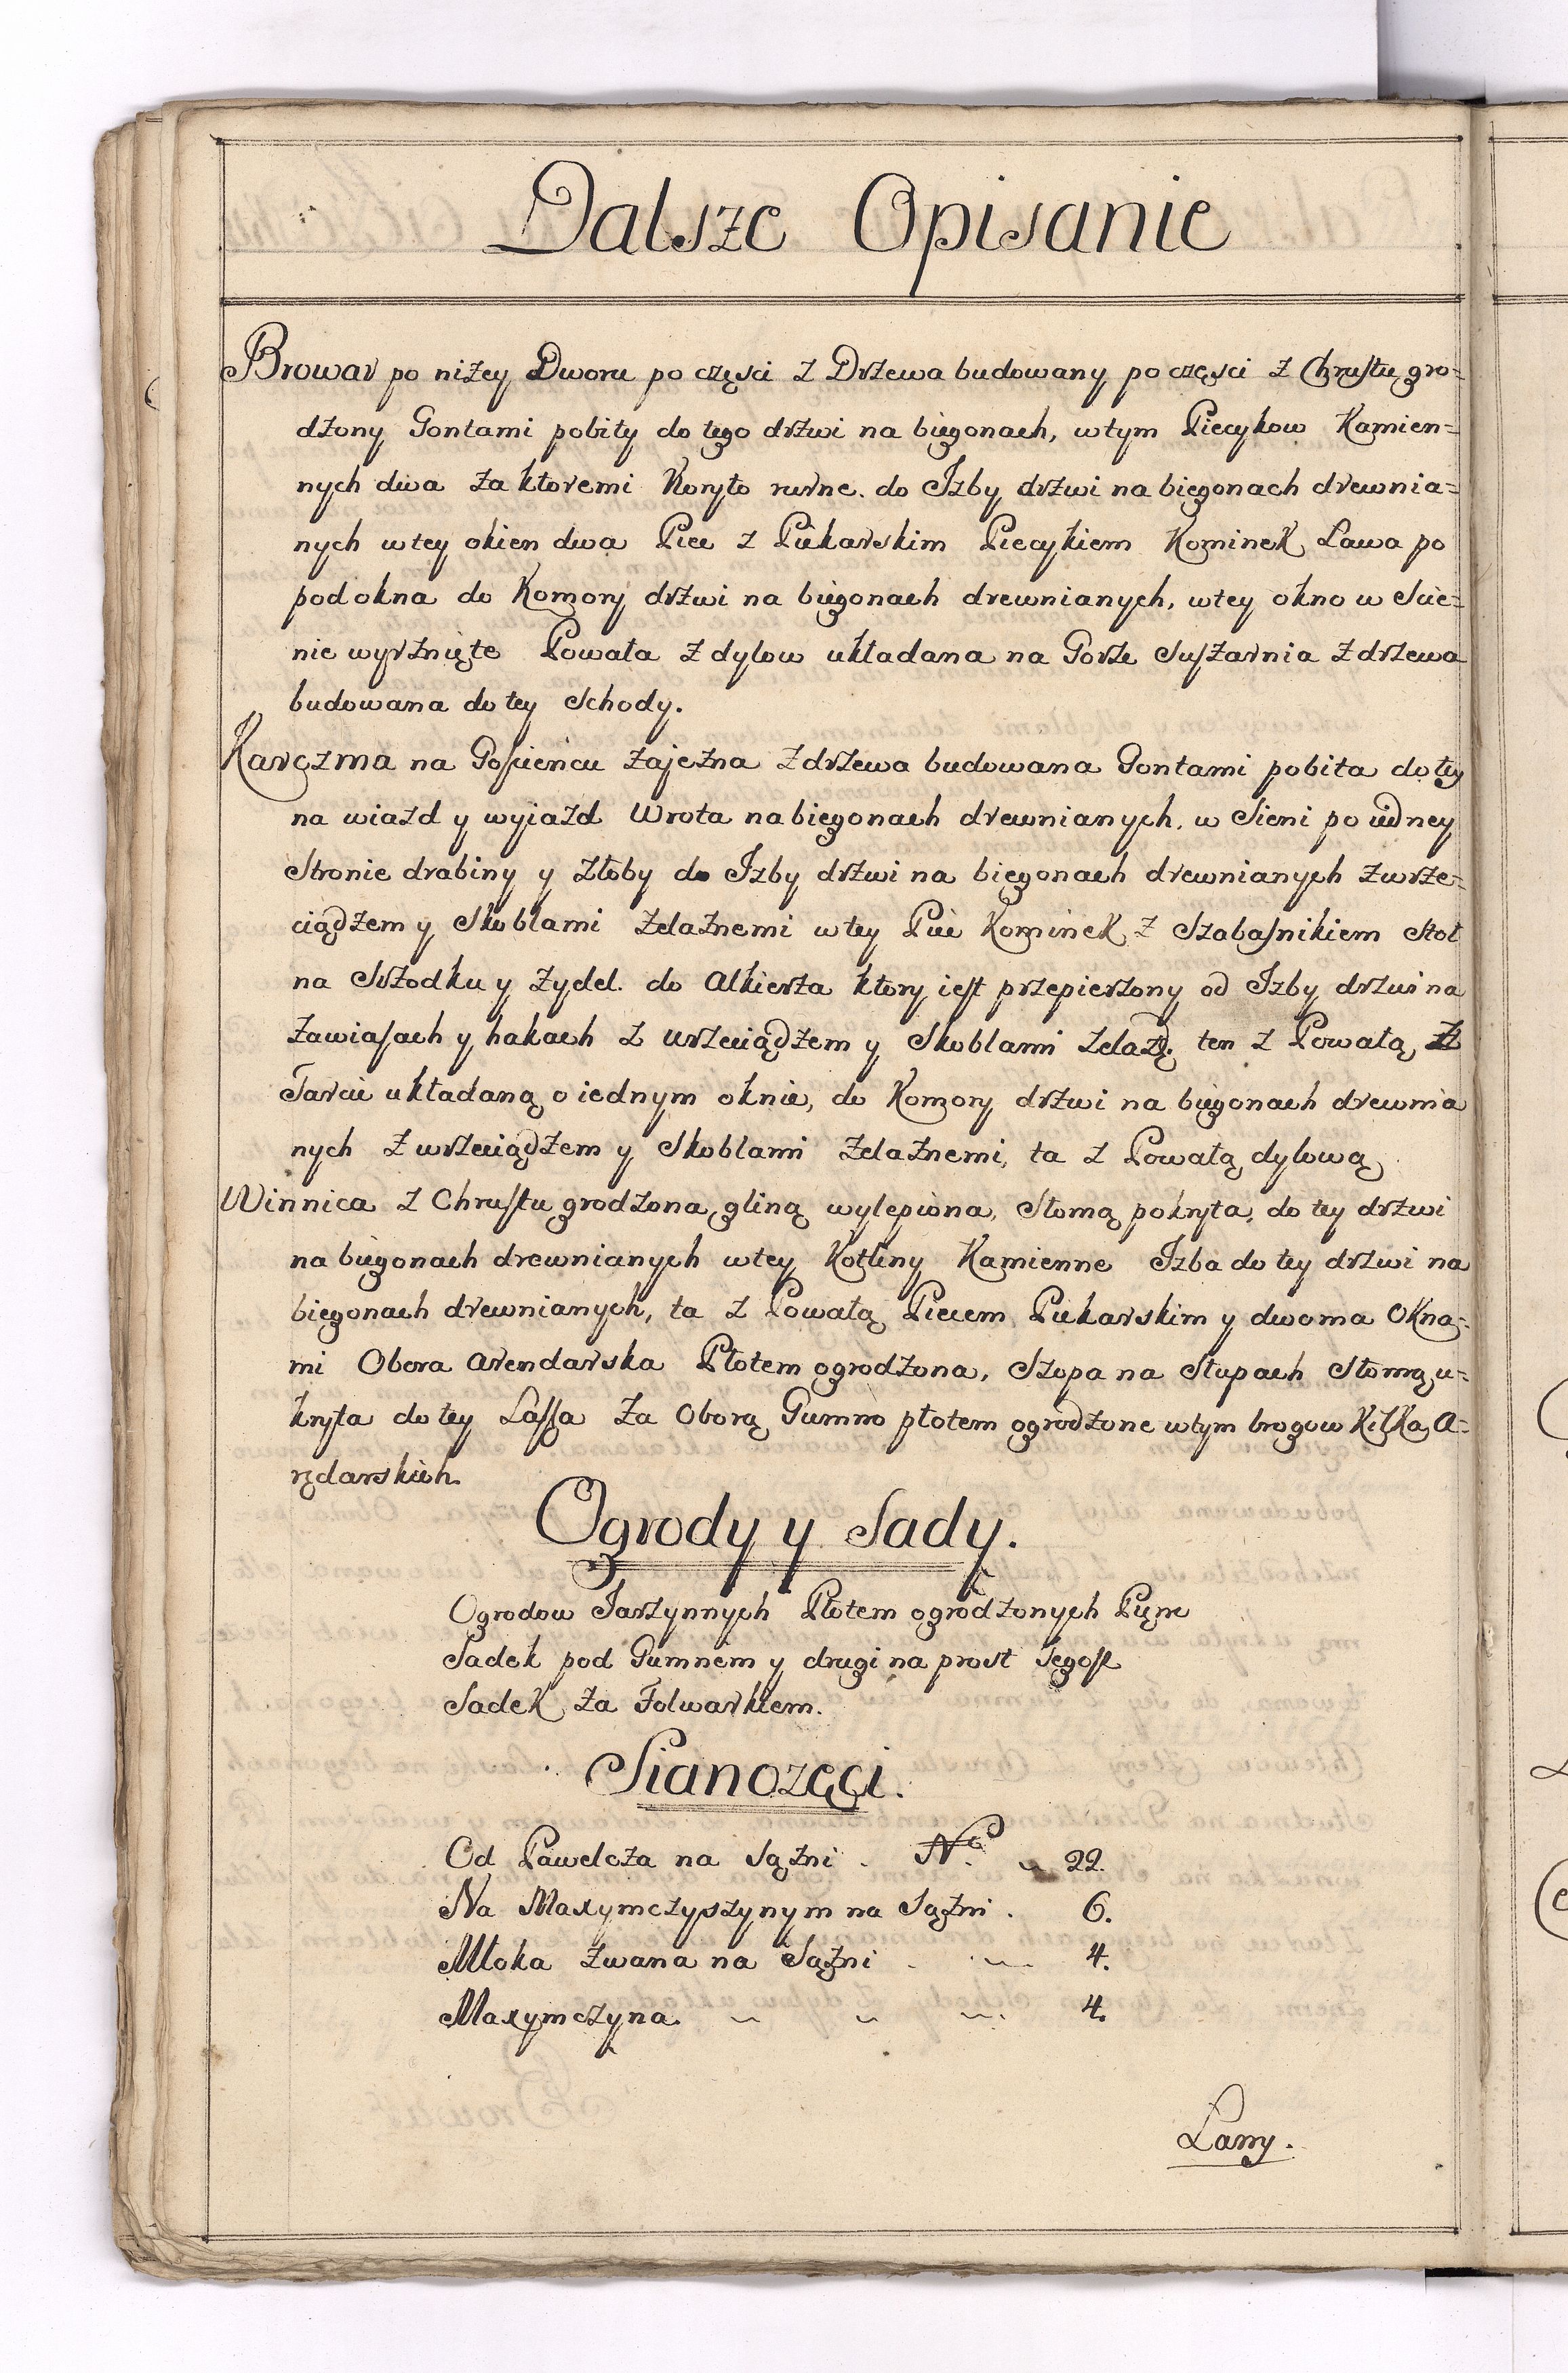 Dalsze Opisanie
Browar po niżey Dworu po częsci z Drzewa budowany po częsci z Chrustu gro=
dzony Gontami pobity do tego drzwi na biegonach, w tym Piecykow Kamien=
nych dwa za ktoremi Koryto rurne. do Izby drzwi na biegonach drewnia=
nych w tey okien dwa Piec z Piekarskim Piecykiem Kominek Ława po
pod okna do Komory drzwi na biegonach drewnianych, w tey okno w Scie=
nie wyrznięte Powała z dylow układana na Gorze Suszarnia z drzewa
budowana do tey Schody.
Karczma na Goscieńcu zajezna z drzewa budowana Gontami pobita do tey
na wiazd y wyiazd Wrota na biegonach drewnianych. w Sieni po iedney
Stronie drabiny y złoby do Izby drzwi na biegonach drewnianych z wrze=
ciądzem y Skoblami zelaznemi w tey Piec Kominek z Szabasnikiem Stoł
na Srzodku y zydel. do Alkierza ktory iest przepierzony od Izby drzwi na
zawiasach y hakach z wrzeciądzem y Skoblami zelaz. ten z Powałą z
Tarcic układaną o iednym oknie, do Komory drzwi na biegonach drewnia
nych z wrzeciądzem y Skoblami zelaznemi, ta z Powałą dylową
Winnica z Chrustu grodzona, gliną wylepiona, Słomą pokryta, do tey drzwi
na biegonach drewnianych w tey Kotliny Kamienne Izba do tey drzwi na
biegonach drewnianych, ta z Powałą Piecem Piekarskim y dwoma Okna=
mi Obora Arendarska Płotem ogrodzona, Szopa na Słupach Słomą u=
kryta do tey Łassa za Oborą Gumno płotem ogrodzone w tym brogow Kilka A=
rędarskich.
Ogrody y Sady.
Ogrodow Jarzynnych Płotem ogrodzonych
Sadek pod Gumnem y drugi na prost tegosz
Sadek za Folwarkiem.
Sianozęci.
Od Pawelcza na Sążni . No. 22.
Na Maxymczyszynym na Sążni . 6.
Młoka zwana na Sążni 4.
Maxymczyna. 4.
Łany.